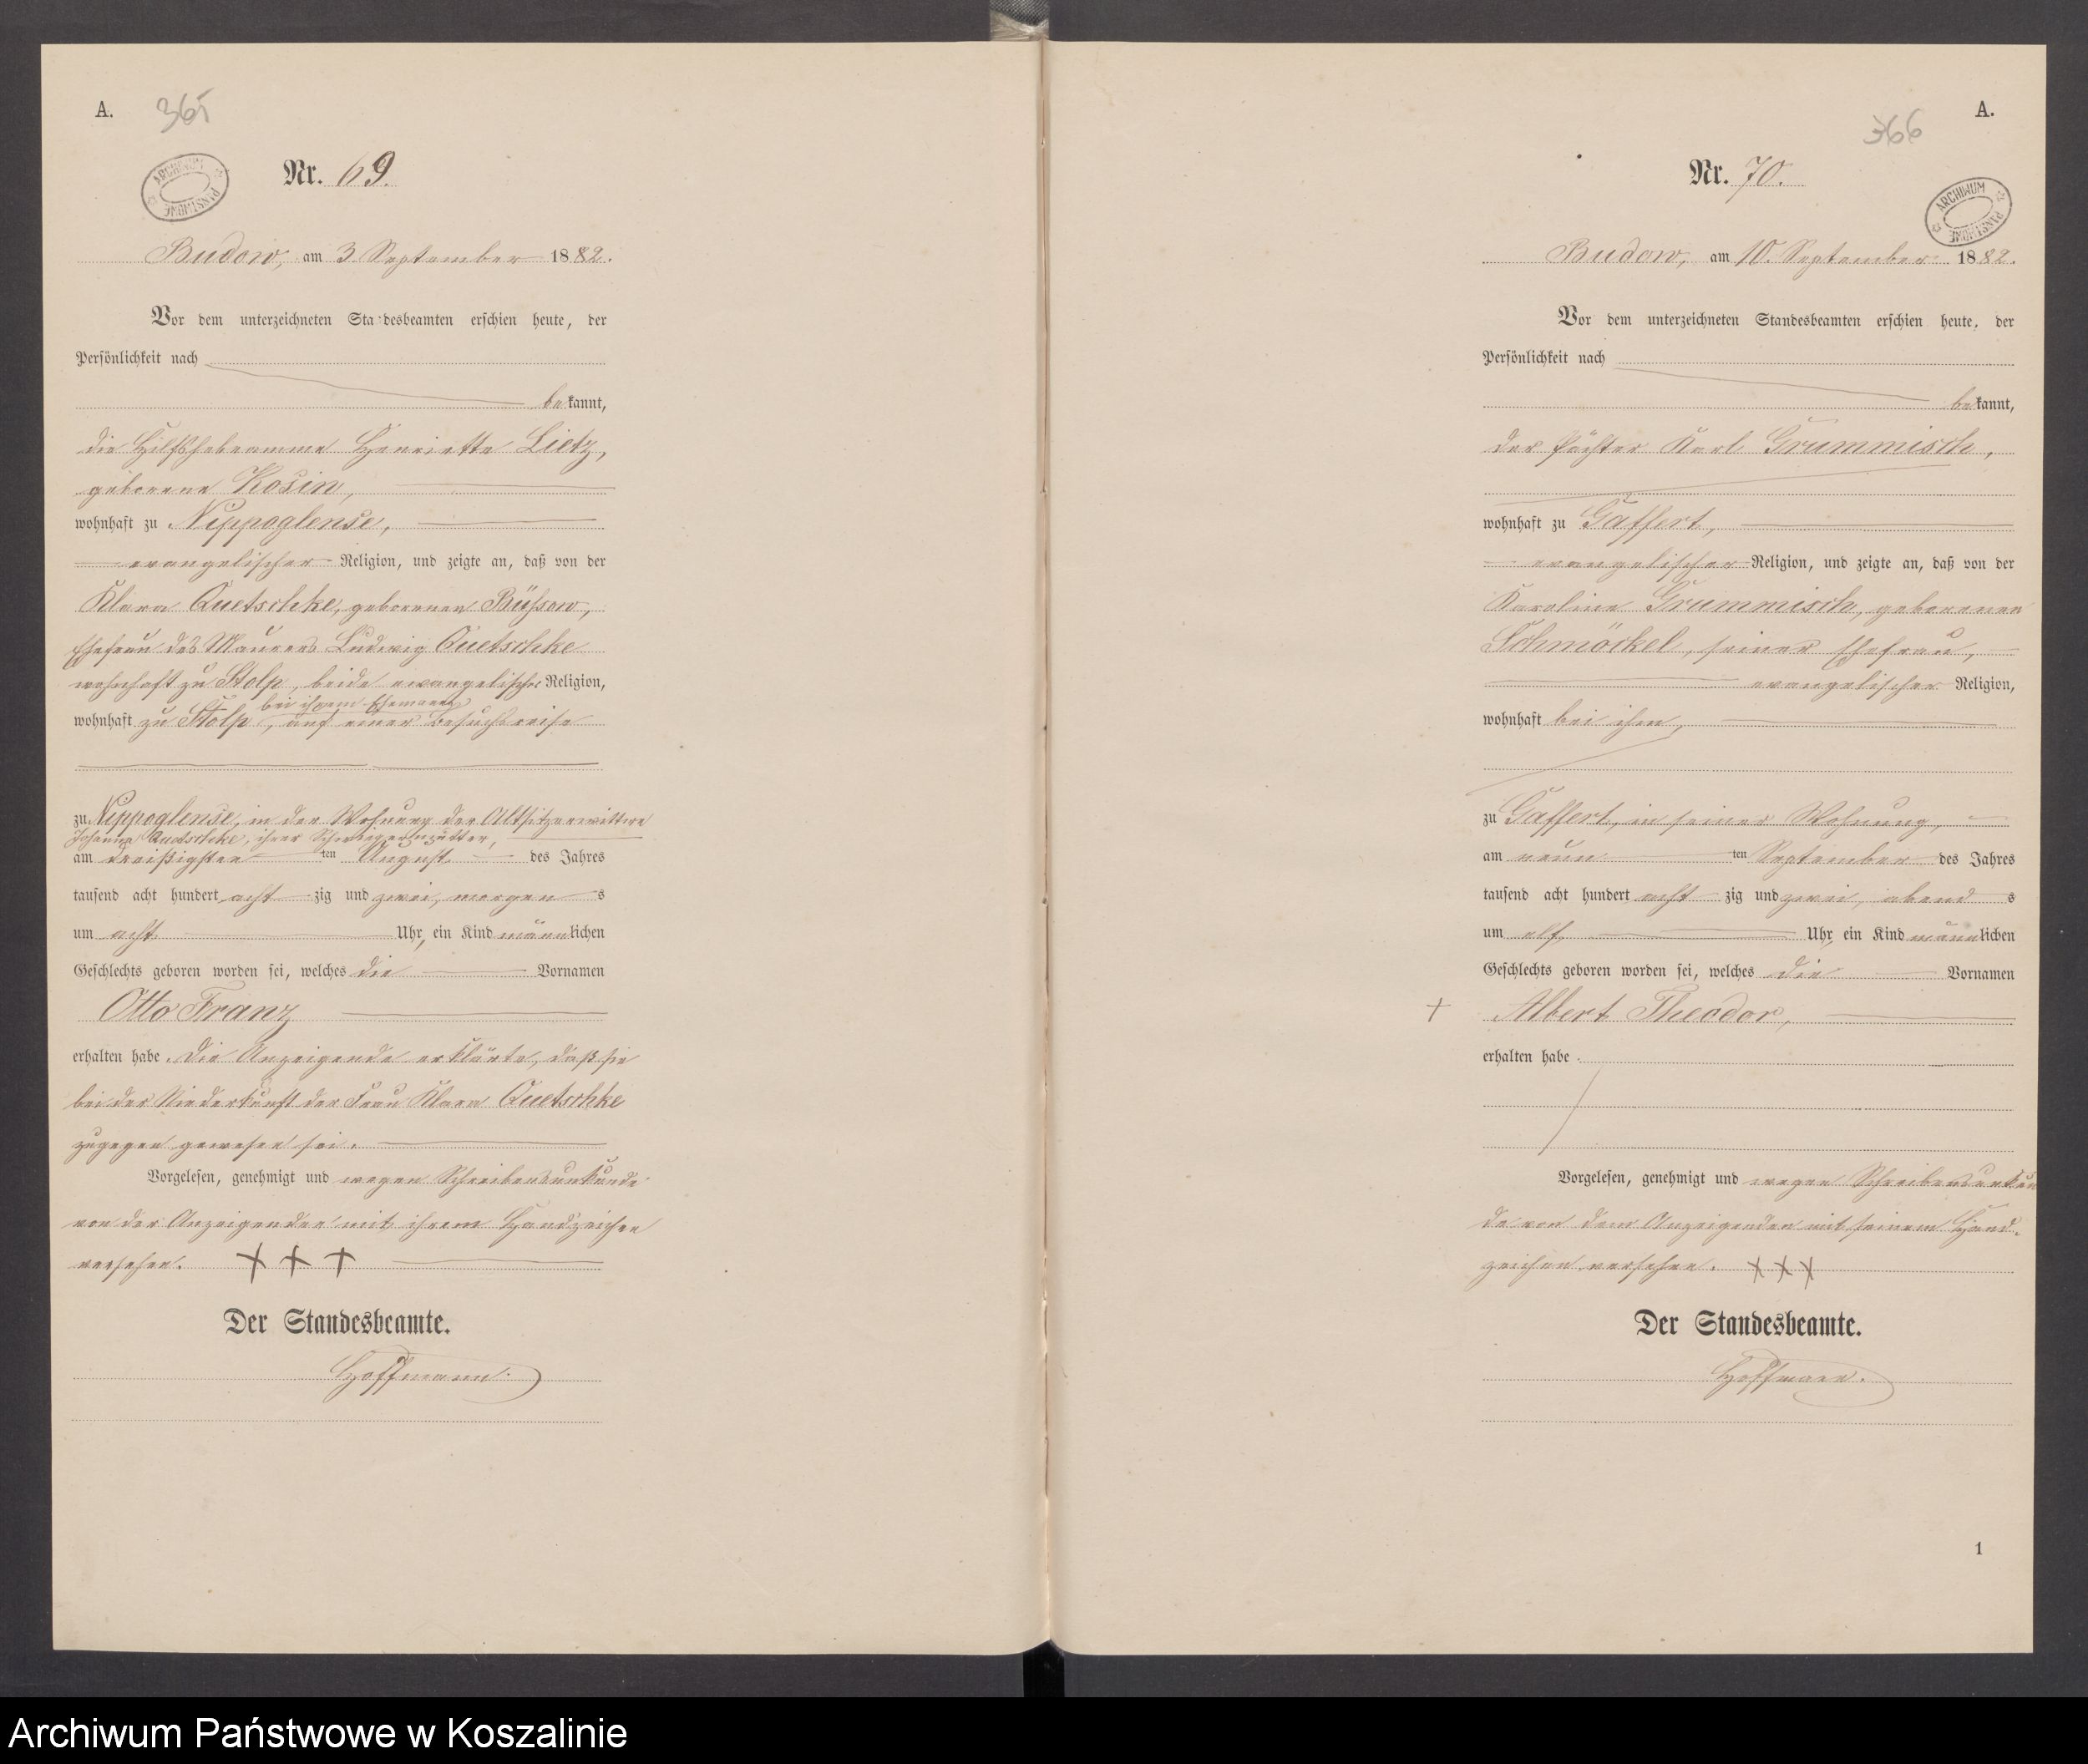 A.
365
ARCHIWUM PAŃSTWOWE
Nr. 69.
Budow, am 3. September 1882.
Vor dem unterzeichneten Standesbeamten erschien heute, der
Persönlichkeit nach
bekannt,
die Hilfshebeamme Henriette Lietz,
geborene Kosin,
wohnhaft zu Nippoglense,
evangelischer Religion, und zeigte an, daß von der
Klara Quetschke, geborenen Büßow,
Ehefrau des Maurers Ludwig Quetschke
wohnhaft zu Stolp, beide evangelischer Religion,
bei ihrem Ehemann
wohnhaft zu Stolp, auf einer Besuchsreise
zu Nippoglense, in der Wohnung der Altsitzerwittwe
Johanna Quetschke, ihrer Schwiegermutter,
am dreißigsten ten August des Jahres
tausend acht hundert acht zig und zwei, morgens
um acht Uhr, ein Kind männlichen
Geschlechts geboren worden sei, welches die Vornamen
Otto Franz
erhalten habe. Die Anzeigende erklärte, daß sie
bei der Niederkunft der Frau Klara Quetschke
zugegen gewesen sei.
Vorgelesen, genehmigt und wegen Schreibensunkunde
von der Anzeigenden mit ihrem Handzeichen
versehen. + + +
Der Standesbeamte.
Hoffmann.
A.
366
ARCHIWUM PAŃSTWOWE
Nr. 70.
Budow, am 10. September 1882.
Vor dem unterzeichneten Standesbeamten erschien heute, der
Persönlichkeit nach
bekannt,
der Pächter Karl Grummisch,
wohnhaft zu Gaffert,
evangelischer Religion, und zeigte an, daß von der
Karoline Grummisch, geborenen
Schmöckel, seiner Ehefrau,
evangelischer Religion,
wohnhaft bei ihm,
zu Gaffert, in seiner Wohnung,
am neun ten September des Jahres
tausend acht hundert acht zig und zwei, abends
um elf Uhr, ein Kind männlichen
Geschlechts geboren worden sei, welches die Vornamen
+ Albert Theodor,
erhalten habe.
Vorgelesen, genehmigt und wegen Schreibensunkun
de von dem Anzeigenden mit seinem Hand-
zeichen versehen. x x x
Der Standesbeamte.
Hoffmann.
1
Archiwum Państwowe w Koszalinie